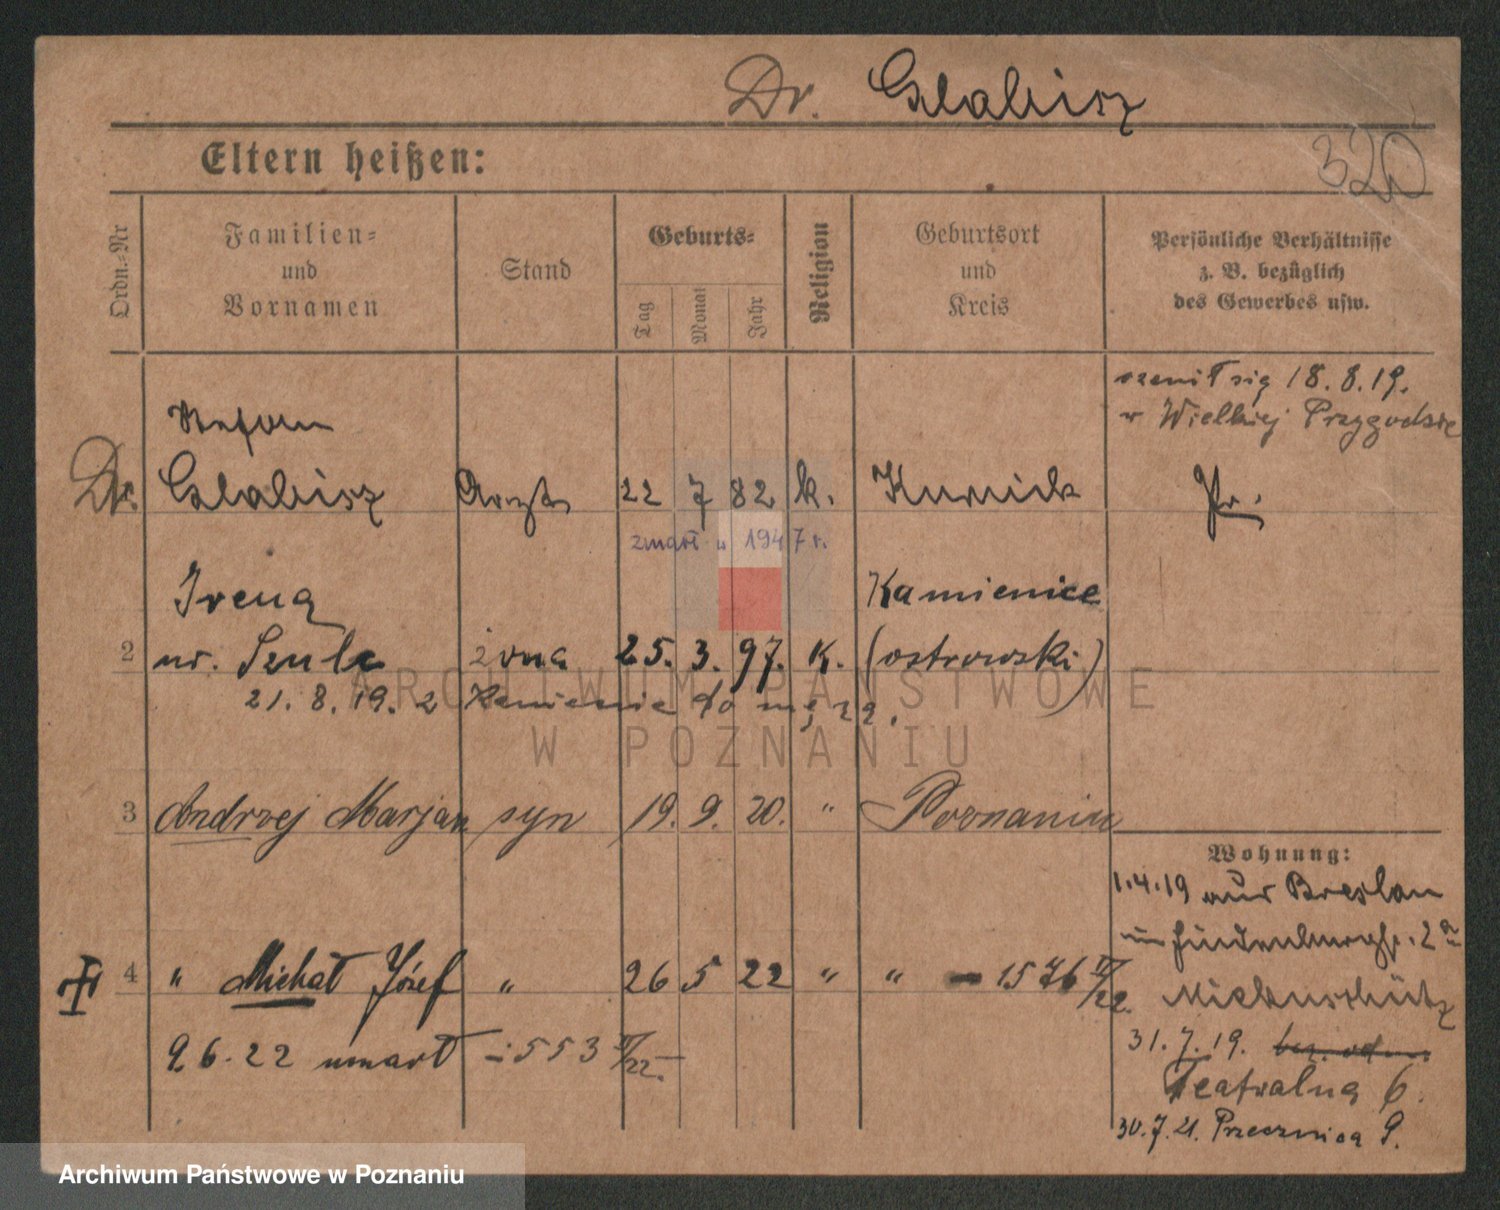 Dr. Glabisz
320
Eltern heißen:
Ordn.-Nr
Familien-
und
Vornamen
Stand
Geburts-
Tag
Monat
Jahr
Religion
Geburtsort
und
Kreis
Persönliche Verhältnisse
z. B. bezüglich
des Gewerbes usw.
ożenił się 18.8.19.
w Wielkiej Przygodzice
Stefan
Dr. Glabisz Arzt 22 7 82 k. Kurnick Pr.
zmarł w 1947 r.
Irena Kamienice
2 ur. Szulc żona 25. 3. 97. k. (ostrowski)
21. 8. 19. z Kamienic do męża.
3 Andrzej Marjan syn 19. 9. 20. " Poznaniu
4 " Michał Józef " 26 5 22 " " - 1576 V/22.
9 6. 22 umarł - 553 V/22 -
Wohnung:
1.4.19 aus Breslau
in Hindenburgstr. 2a
31.7.19.
Teatralna 6.
30.7.21. Przecznica 9.
ARCHIWUM PAŃSTWOWE
W POZNANIU
Archiwum Państwowe w Poznaniu